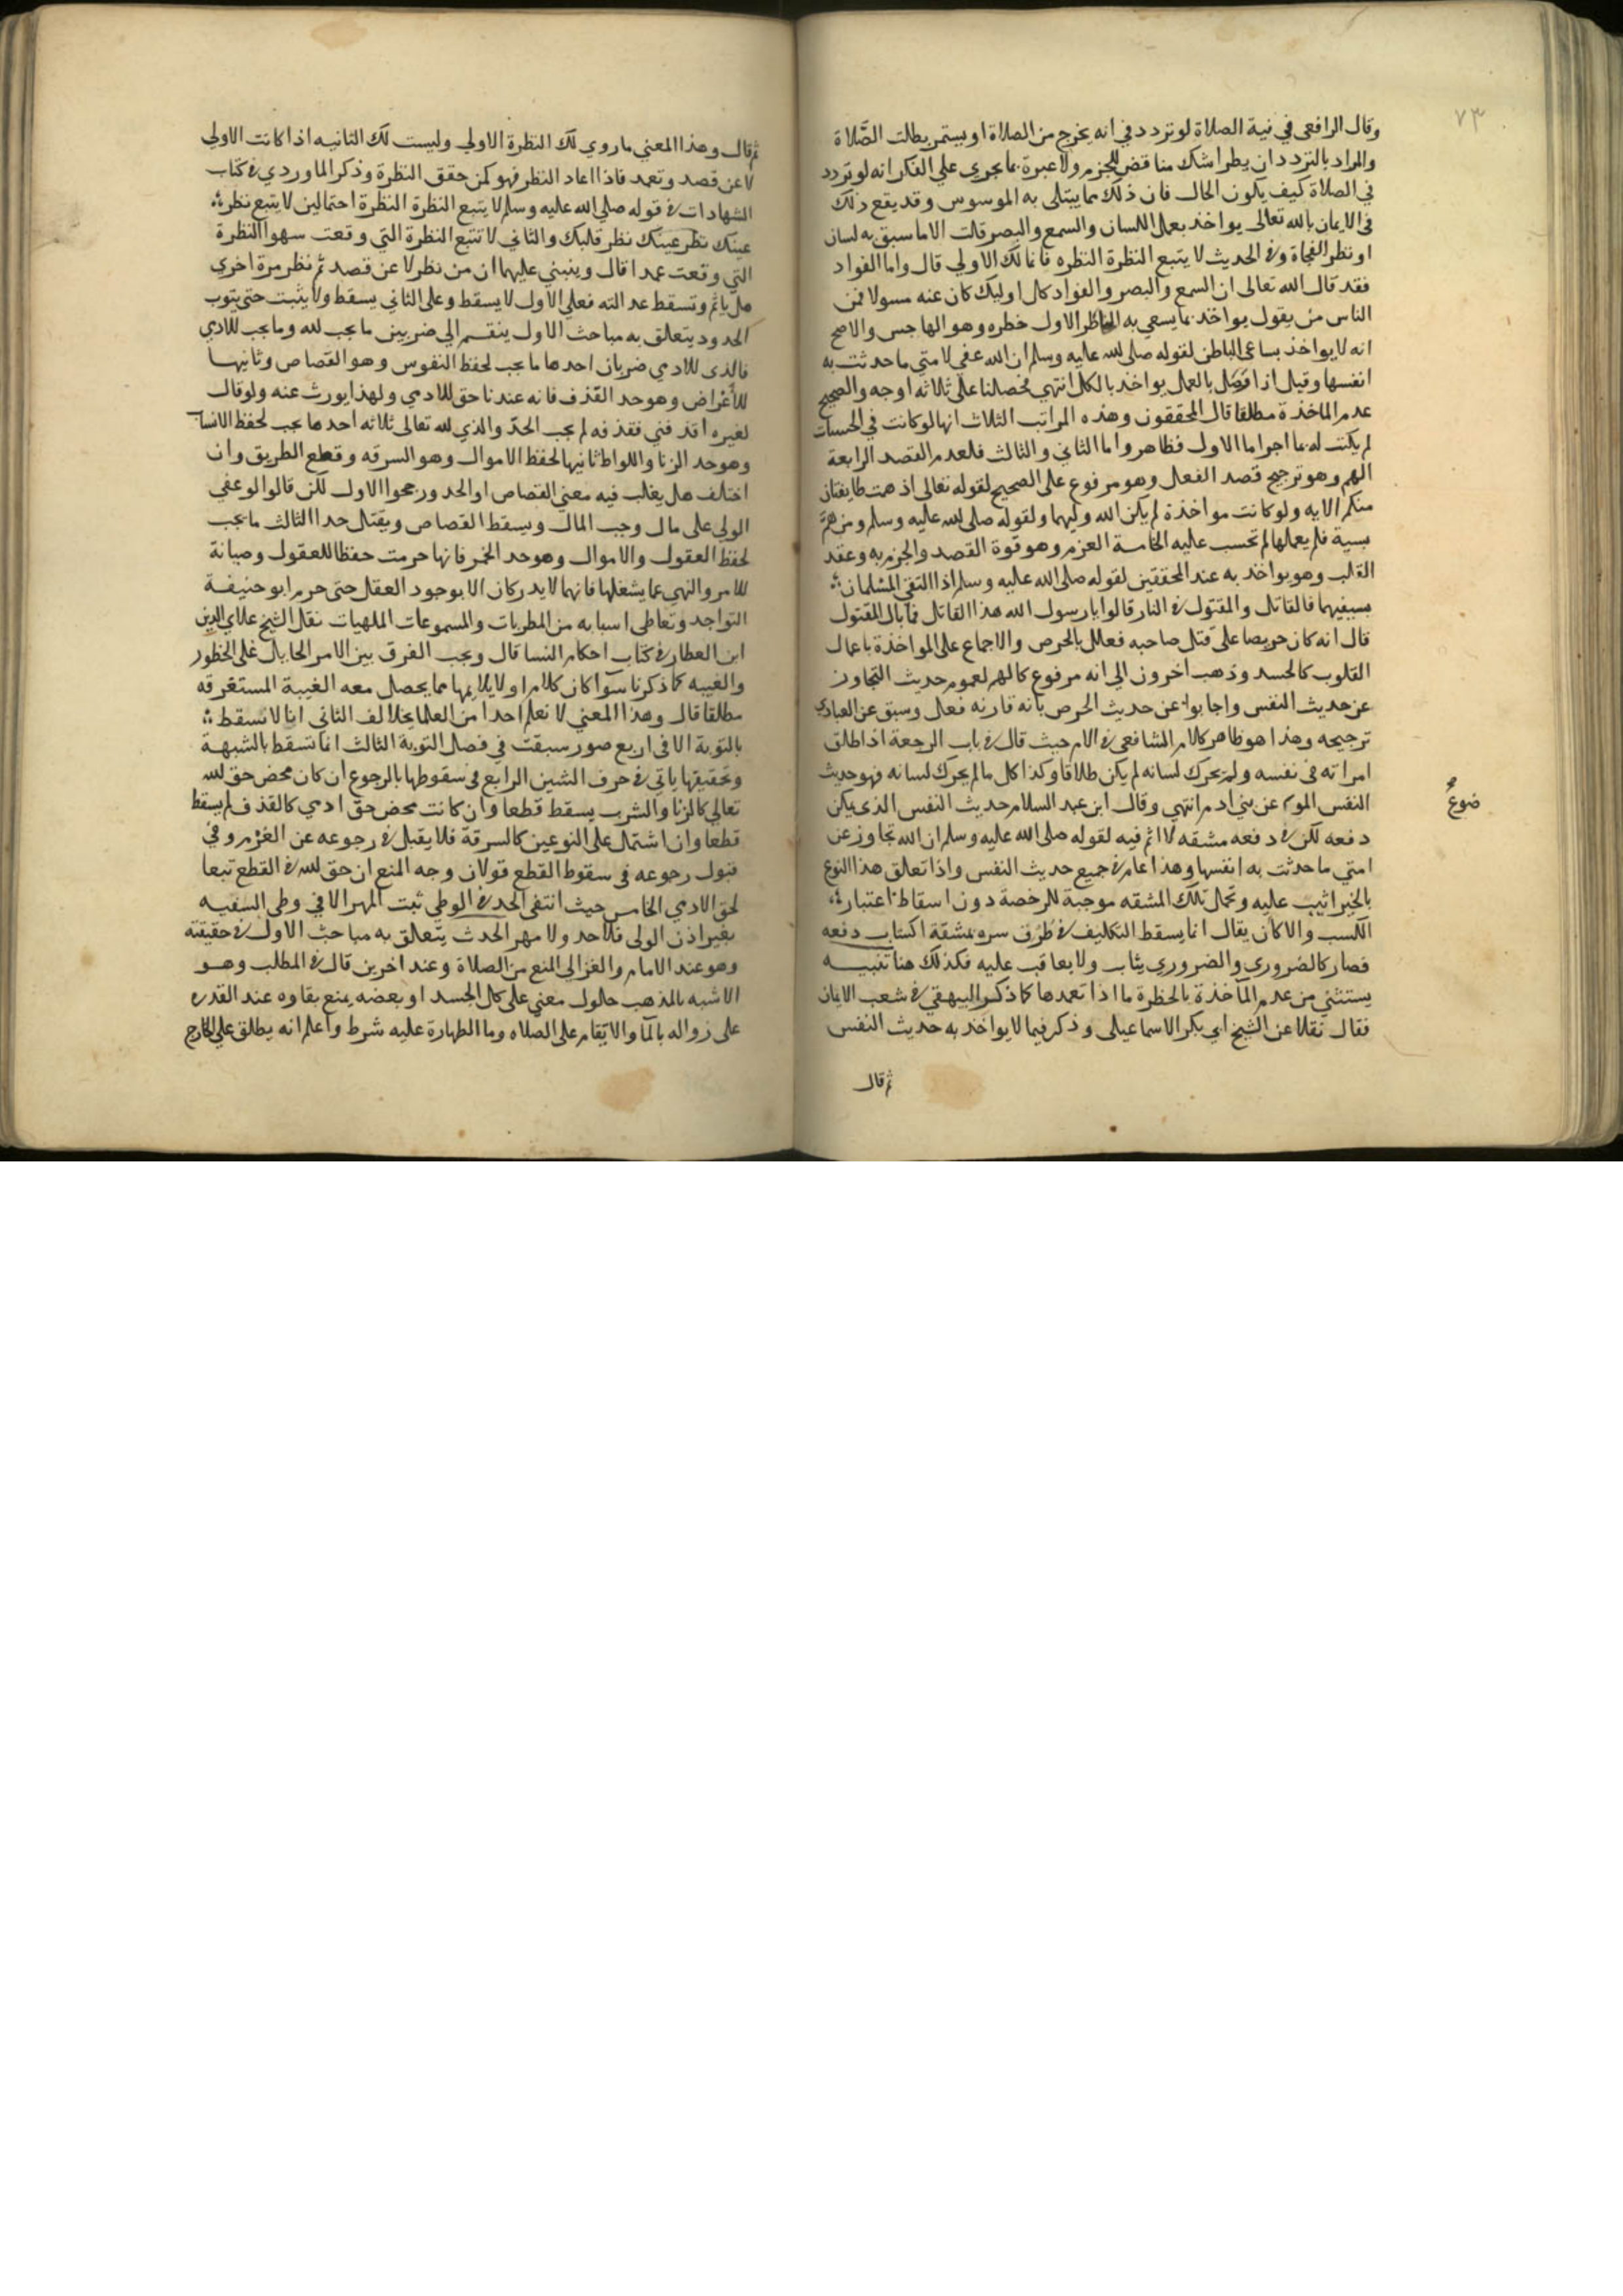 ٧٣
وقال الرافعي في نية الصلاة لو تردد في انه يخرج من الصلاة او يستمر بطلت الصَّلاة
والمراد بالتردد ان يطرا شك مناقض للجزم ولا عبرة بما يجري علي الفكر انه لو تردد
في الصلاة كيف يكون الحال فان ذلك مما يبتلى به الموسوس وقد يقع ذلك
في الايمان بالله تعالى يواخذ بعمل اللسان والسمع والبصر قلت الا ما سبق به لسان
او نظر الفجاة وفي الحديث لا يتبع النظرة النظره فانما لك الاولي قال واما الفواد
فقد قال الله تعالى ان السمع والبصر والفواد كل اوليك كان عنه مسولا فمن
الناس من يقول يواخذ بما يسعي به الخاطر الاول خطره وهو الهاجس والاصح
انه لا يواخذ بساعي الباطن لقوله صلى الله عليه وسلم ان الله عفي لامتي ما حدثت به
انفسها وقيل اذا اتصل بالعمل يواخذ بالكل انتهي فحصلنا على ثلاثه اوجه والصحيح
عدم الماخذة مطلقا قال المحققون وهذه المراتب الثلاث انها لو كانت في الحسنات
لم يكتب له بها اجر اما الاول فظاهر واما الثاني والثالث فلعدم القصد الرابعة
الهم وهو ترجيح قصد الفعل وهو مرفوع على الصحيح لقوله تعالى اذ همت طايفتان
منكم الايه ولو كانت مواخذة لم يكن الله وليهما ولقوله صلى الله عليه وسلم ومن همَّ
بسية فلم يعملها لم تحسب عليه الخامسة العزم وهو قوة القصد والجزم به وعقد
القلب وهو يواخذ به عند المحققين لقوله صلى الله عليه وسلم اذا التقي المسلمان
بسيفيهما فالقاتل والمقتول في النار قالوا يا رسول الله هذا القاتل فما بال المقتول
قال انه كان حريصا على قتل صاحبه فعلل بالحرص والاجماع على المواخذة باعمال
القلوب كالحسد وذهب اخرون الي انه مرفوع كالهم لعموم حديث التجاوز
عن حديث النفس واجابوا عن حديث الحرص بانه قارنه فعل وسبق عن العبادي
ترجيحه وهذا هو ظاهر كلام الشافعي في الام حيث قال في باب الرجعة اذا طلق
امراته في نفسه ولم يحرك لسانه لم يكن طلاقا وكذا كل ما لم يحرك لسانه فهو حديث
النفس الموضوع عن بني ادم انتهي وقال ابن عبد السلام حديث النفس الذي يمكن
ضوع
دفعه لكن في دفعه مشقه لا اثم فيه لقوله صلى الله عليه وسلم ان الله تجاوز عن
امتي ما حدثت به انفسها وهذا عام في جميع حديث النفس واذا تعلق هذا النوع
بالخير اثيب عليه وتحمل تلك المشقه موجبة للرخصة دون اسقاط اعتبار
الكسب والا كان يقال انما يسقط التكليف في طرف سره بمشقة اكتساب دفعه
فصار كالضروري والضروري يثاب ولا يعاقب عليه فكذلك هنا تنبيه
يستثني من عدم المآخذة بالخطرة ما اذا تعمدها كما ذكر البيهقي في شعب الايمان
فقال نقلا عن الشيخ ابي بكر الاسماعيلى وذكر فيما لا يواخذ به حديث النفس
ثم قال
ثم قال وهذا المعني ما روي لك النظرة الاولي وليست لك الثانيه اذا كانت الاولي
لا عن قصد وتعمد فاذا اعاد النظر فهو كمن حقق النظرة وذكر الماوردي في كتاب
الشهادات في قوله صلى الله عليه وسلم لا يتبع النظرة النظرة احتمالين لا يتبع نظر
عينك نظر عينك نظر قلبك والثاني لا تتبع النظرة التي وقعت سهوا النظرة
التي وقعت عمدا قال وينبني عليهما ان من نظر لا عن قصد ثم نظر مرة اخري
هل ياثم وتسقط عدالته فعلي الاول لا يسقط وعلى الثاني يسقط ولا يثبت حتى يتوب
الحدود يتعلق به مباحث الاول ينقسم الي ضربين ما يجب لله وما يجب للادمي
فالذي للادمي ضربان احدها ما يجب لحفظ النفوس وهو القصاص وثانيها
للأعراض وهو حد القذف فانه عندنا حق للادمي ولهذا يورث عنه ولو قال
لغيره اقذفني فقذفه لم يجب الحدّ والذي لله تعالى ثلاثه احدها يجب لحفظ الانساب
وهو حد الزنا واللواط ثانيها لحفظ الاموال وهو السرقه وقطع الطريق وان
اختلف هل يغلب فيه معني القصاص او الحد ورجحوا الاول لكن قالوا لو عفي
الولي على مال وجب المال ويسقط القصاص ويقتل حدا الثالث ما يجب
لحفظ العقول والاموال وهو حد الخمر فانها حرمت حفظا للعقول وصيانة
للامر والنهي عما يشغلها فانهما لا يدركان الا بوجود العقل حتى حرم ابو حنيفة
التواجد وتعاطي اسبابه من المطربات والمسموعات الملهيات نقل الشيخ علاي الدين
ابن العطار في كتاب احكام النسا قال ويجب الفرق بين الامر الحايل على المحظور
والغيبه كما ذكرنا سوآ كان كلاما او لا يلايمها مما يحصل معه الغيبة المستغرقه
مطلقا قال وهذا المعني لا نعلم احدا من العلما يخالف الثاني انها لا تسقط
بالتوبة الا في اربع صور سبقت في فصل التوبة الثالث انما تسقط بالشبهة
وتحقيقها ياتي في حرف الشين الرابع في سقوطها بالرجوع ان كان محض حق لله
تعالى كالزنا والشرب يسقط قطعا وان كانت محض حق ادمي كالقذف لم يسقط
قطعا وان اشتمل على النوعين كالسرقة فلا يقبل في رجوعه عن الغرم وفي
قبول رجوعه في سقوط القطع قولان وجه المنع ان حق لله في القطع تبعا
لحق الادمي الخامس حيث انتفي الحد في الوطي ثبت المهر الا في وطي السفيه
بغير اذن الولي فلا حد ولا مهر الحدث يتعلق به مباحث الاول في حقيقته
وهو عند الامام والغزالي المنع من الصلاة وعند اخرين قال في المطلب وهو
الاشبه بالمذهب حلول معني على كل الجسد او بعضه يمنع بقاوه عند القدره
على زواله بالمآ والا يقام على الصلاه وما الطهارة عليه شرط واعلم انه يطلق على الخارج